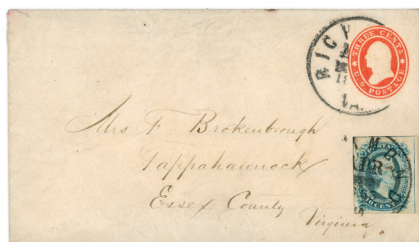 RICH
VA.
THREE CENTS
U.S. POSTAGE
Mrs F Brokenbrough
Tappahannock
Essex County
Virginia